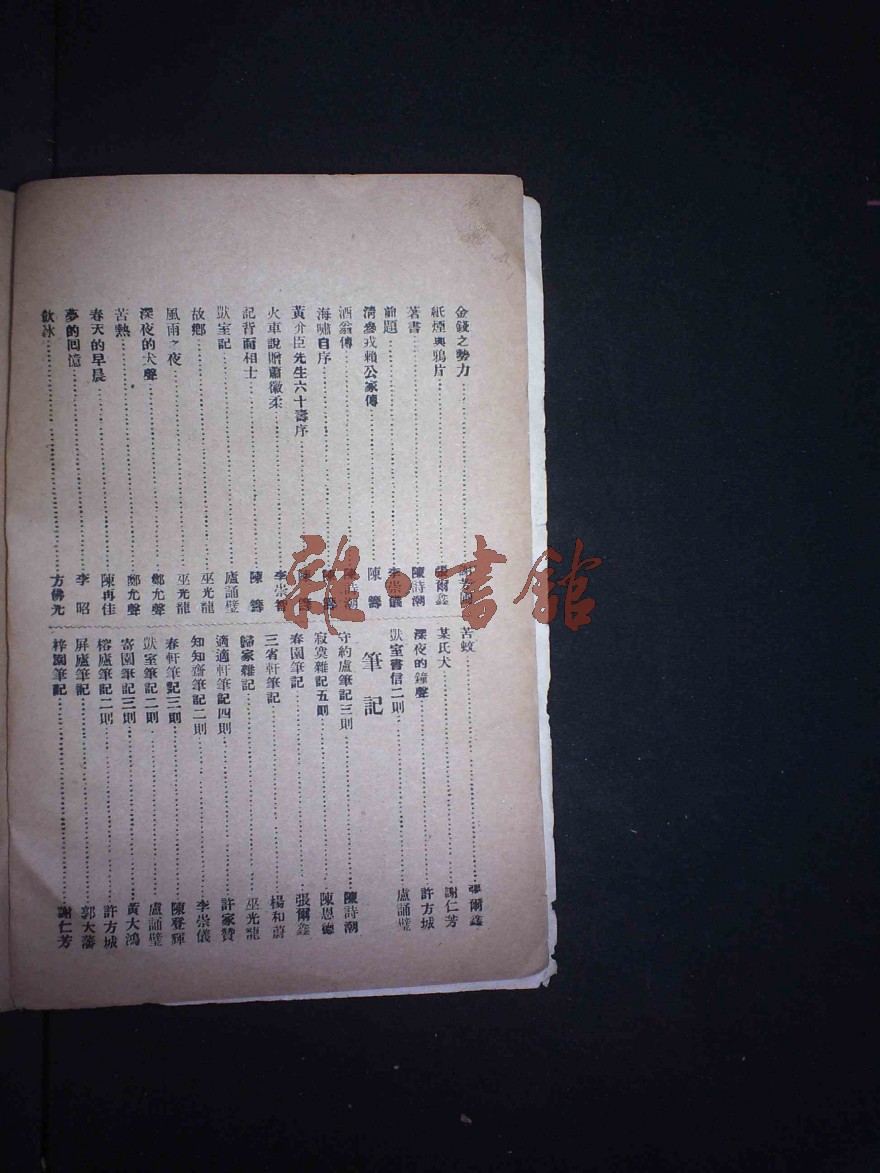 金錢之勢力
紙煙與鴉片 張爾鑫
著書 陳詩潮
前題 李崇儀
清參戎賴公家傳 陳籌
酒翁傳 陳詩潮
海嘯自序 陳籌
黃介臣先生六十壽序 陳籌
火車說贈蕭徽柔 李崇智
記背面相士 陳籌
獃室記 盧誦璧
故鄉 巫光龍
風雨之夜 巫光龍
深夜的犬聲 鄭允聲
苦熱 鄭允聲
春天的早晨 陳冉佳
夢的回憶 李昭
飲冰 方佛允
苦蚊 張爾鑫
某氏犬 謝仁芳
深夜的鐘聲 許方城
獃室書信二則 盧誦璧
筆記
守約盧筆記三則 陳詩潮
寂寞雜記五則 陳恩德
春園筆記 張爾鑫
三省軒筆記 楊和蔚
歸家雜記 巫光龍
適適軒筆記四則 許家贊
知知齋筆記二則 李崇儀
春軒筆記三則 陳登輝
獃室筆記二則 盧誦璧
寄園筆記三則 黃大鴻
榕盧筆記二則 許方城
屏盧筆記 郭大藩
梓園筆記 謝仁芳
雜·書館